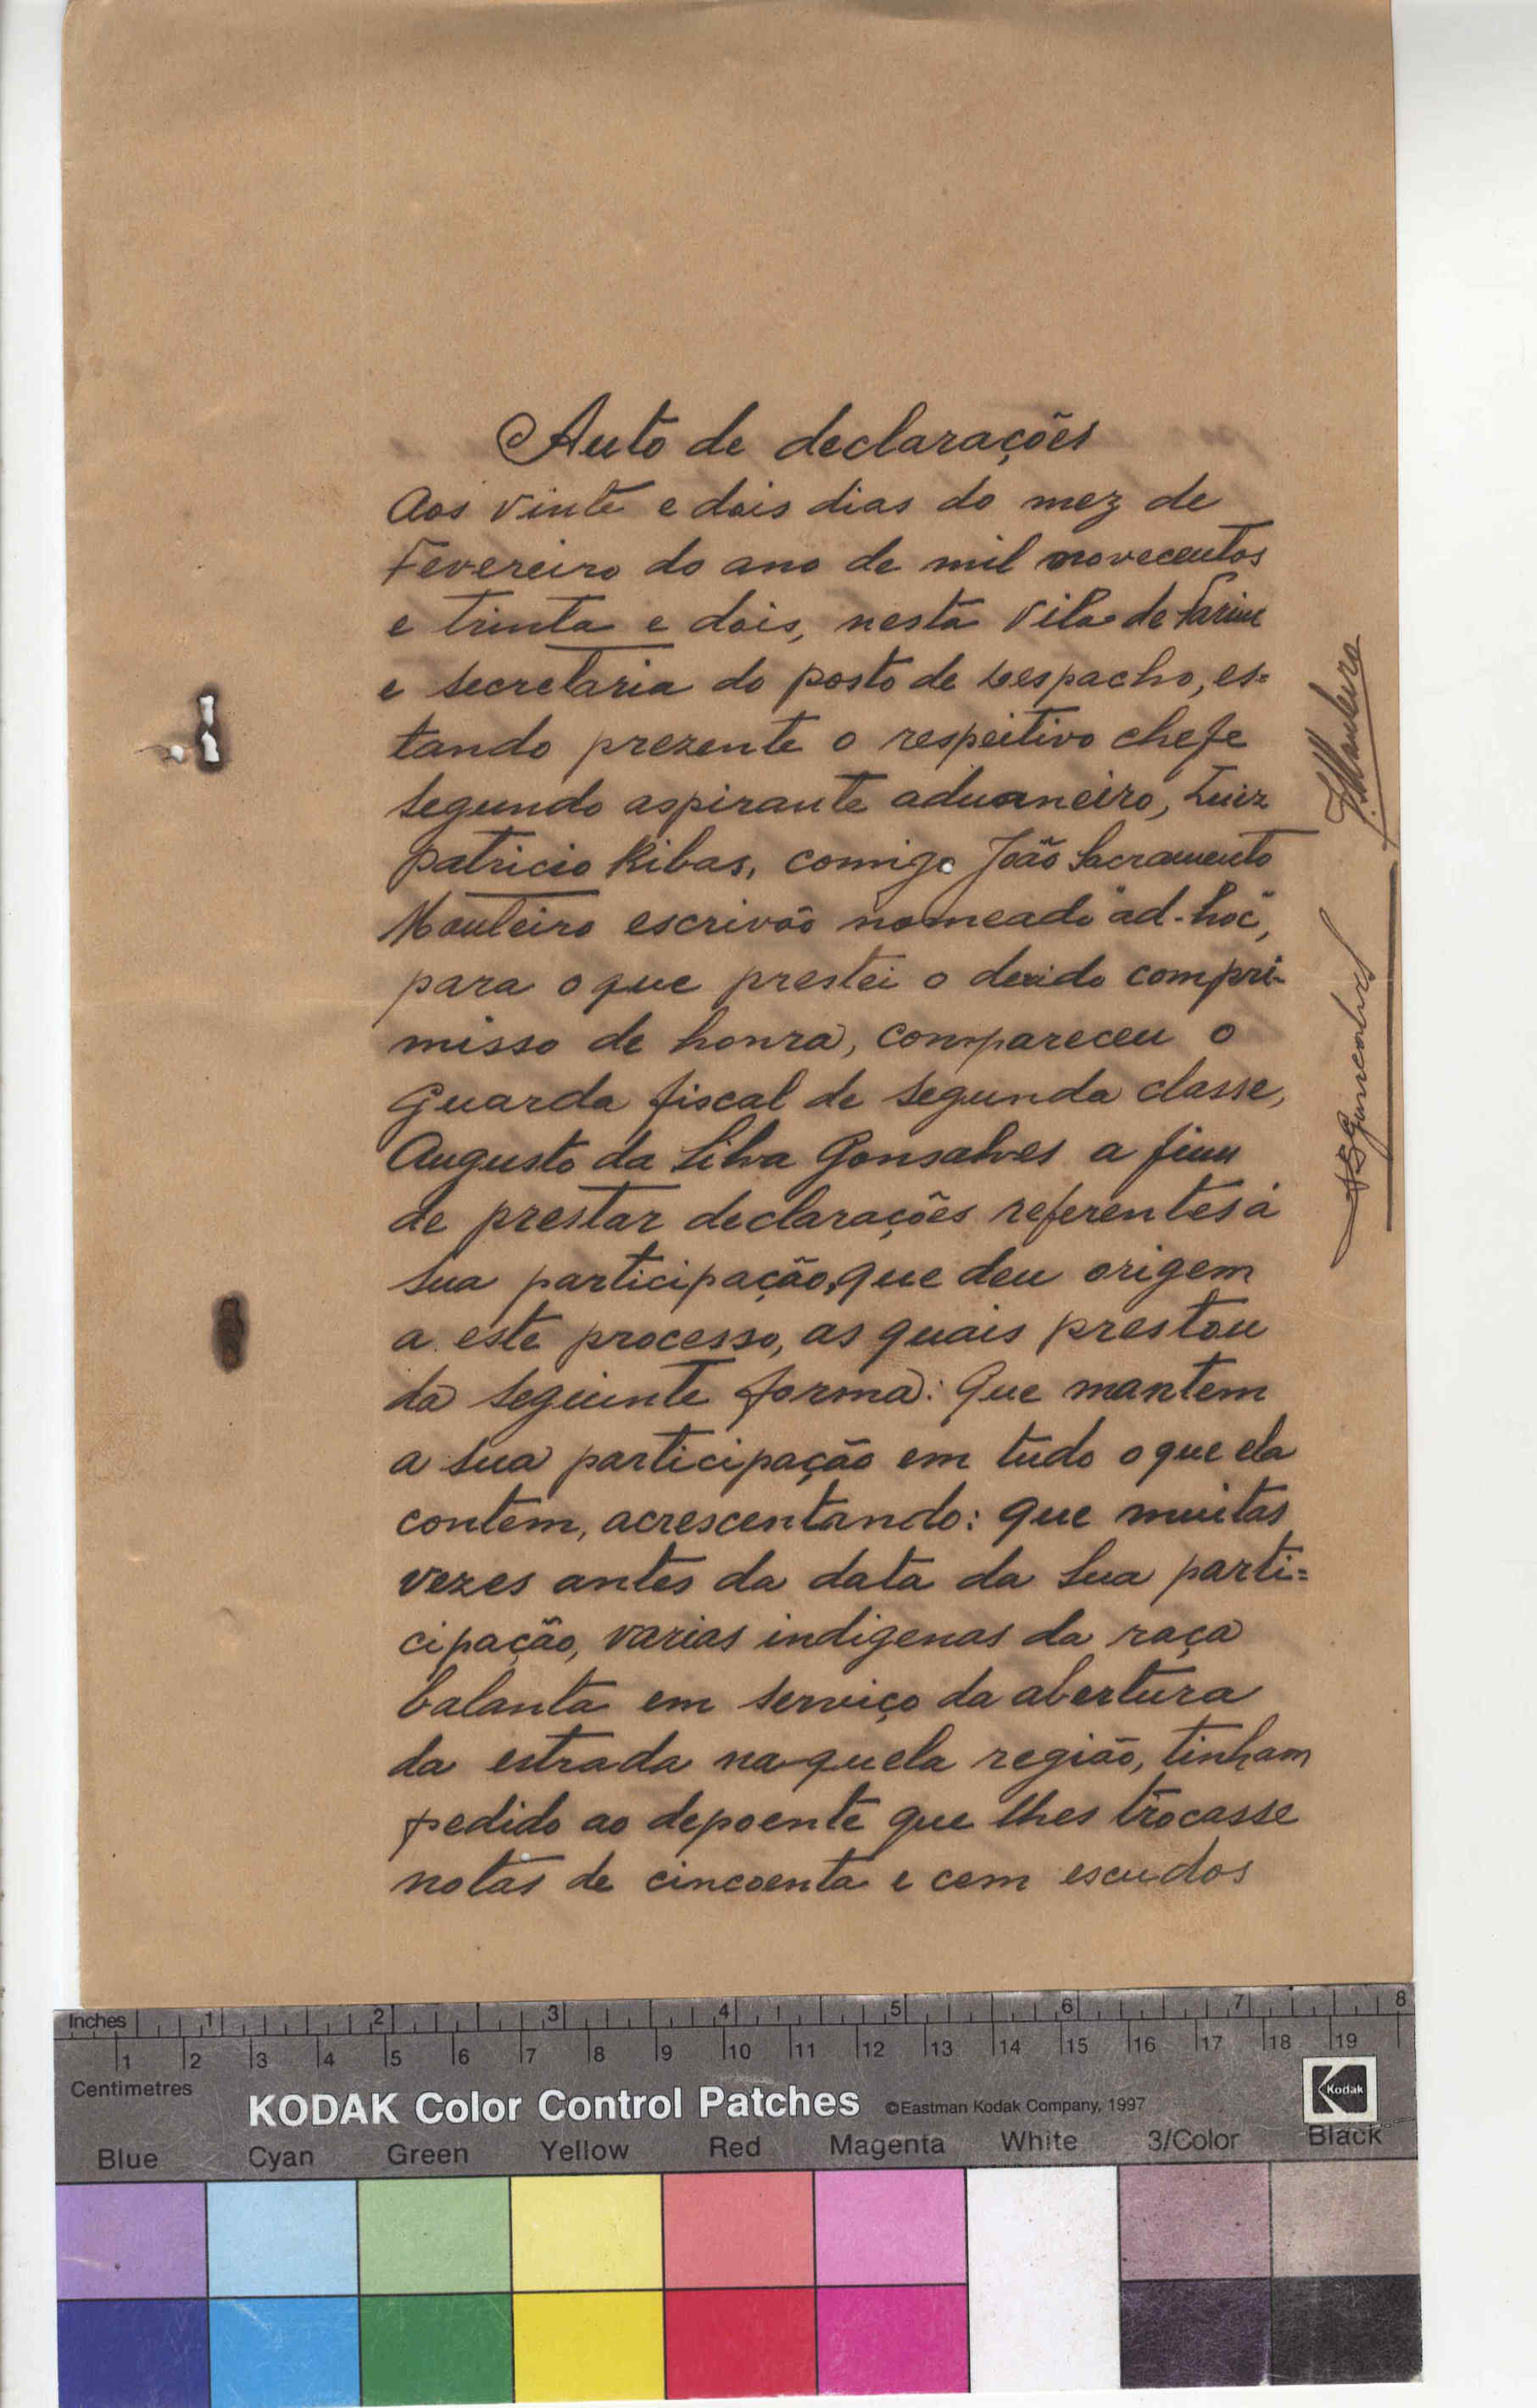 Auto de declarações
Aos vinte e dois dias do mez de
Fevereiro do ano de mil novecentos
e trinta e dois, nesta Vila de Farim
e secretaria do posto de despacho, es=
tando prezente o respeitivo chefe
segundo aspirante aduaneiro, Luiz
Patricio Ribas, comigo João Sacramento
Monteiro escrivão nomeado "ad-hoc",
para o que prestei o devido compri-
misso de honra, compareceu o
Guarda fiscal de segunda classe,
Augusto da Silva Gonsalves a fim
de prestar declarações referentes á
sua participação, que deu origem
a este processo, as quais prestou
da seguinte forma: Que mantem
a sua participação em tudo o que ela
contem, acrescentando: que muitas
vezes antes da data da sua parti=
cipação, varias indigenas da raça
balanta em serviço da abertura
da estrada naquela região, tinham
pedido ao depoente que lhes trocasse
notas de cincoenta e cem escudos
J. Monteiro
Inches 1 2 3 4 5 6 7 8
1 2 3 4 5 6 7 8 9 10 11 12 13 14 15 16 17 18 19
Centimetres
KODAK Color Control Patches ©Eastman Kodak Company, 1997 Kodak
Blue Cyan Green Yellow Red Magenta White 3/Color Black